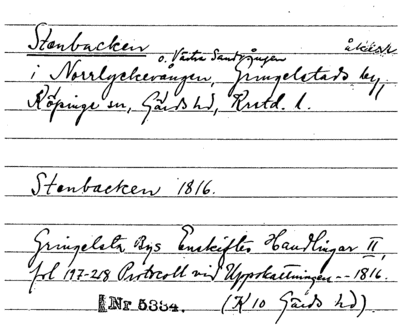 Stenbacken åkrar
o. Västra Sandgången
i Norrlyckevången, Gringelstads by,
Köpinge sn, Gärds hd, Krstd. l.
Stenbacken 1816.
Gringelsta Bys Enskiftes Handlingar II,
fol 197-218 Protocoll vid Uppskattningen -- 1816.
Nr 5334. (K 10 Gärds hd).